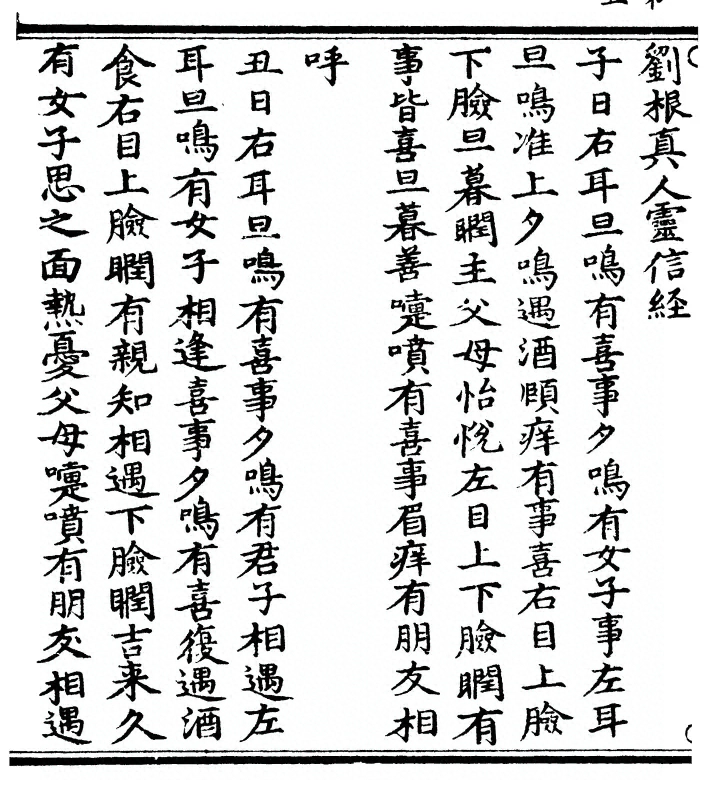 劉根真人靈信経
子日右耳旦鳴有喜事夕鳴有女子事左耳
旦鳴准上夕鳴遇酒頤痒有事喜右目上臉
下臉旦暮瞤主父母怡悅左目上下臉瞤有
事皆喜旦暮善嚏噴有喜事眉痒有朋友相
呼
丑日右耳旦鳴有喜事夕鳴有君子相遇左
耳旦鳴有女子相逢喜事夕鳴有喜復遇酒
食右目上臉瞤有親知相遇下臉瞤吉来久
有女子思之面熱憂父母嚏噴有朋友相遇